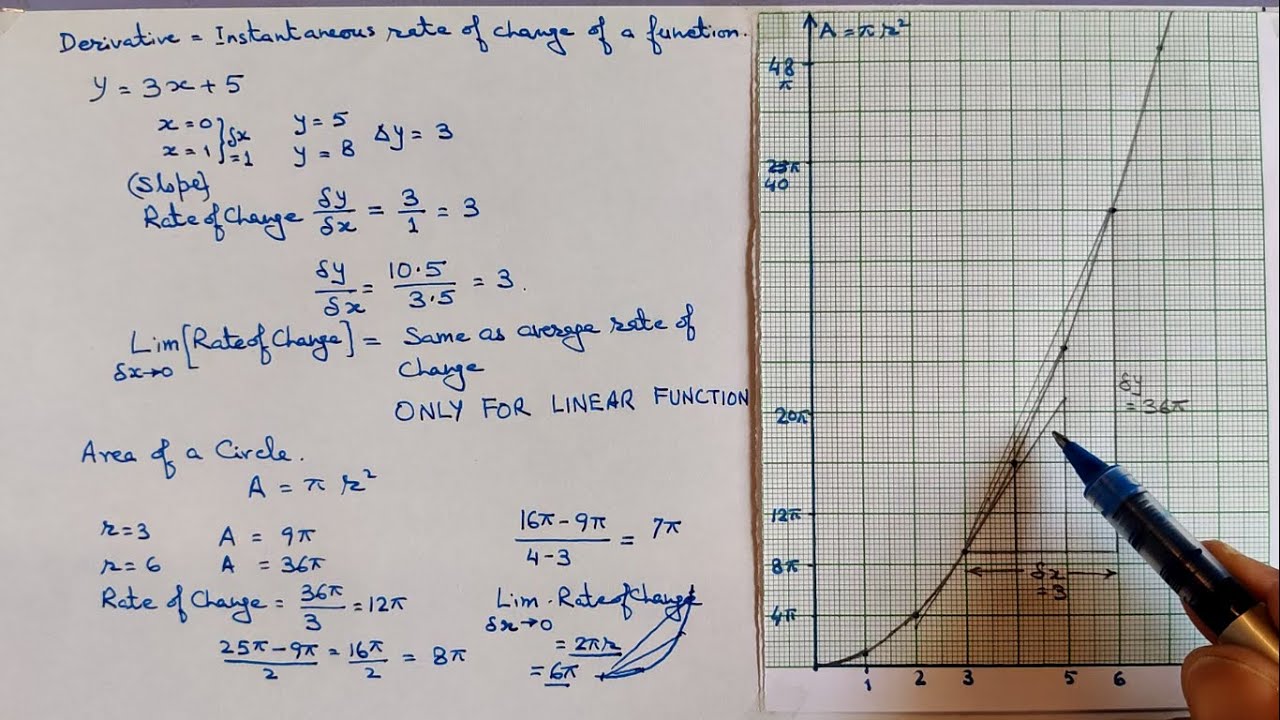 Derivative = Instantaneous rate of change of a function.
y = 3x + 5
x = 0 } δx y = 5 Δy = 3
x = 1 } = 1 y = 8
(Slope)
Rate of Change δy/δx = 3/1 = 3
δy/δx = 10.5/3.5 = 3.
Lim [Rate of Change] = Same as average rate of
δx→0 change
ONLY FOR LINEAR FUNCTION
Area of a Circle.
A = π r²
r = 3 A = 9π
r = 6 A = 36π
Rate of Change = 36π/3 = 12π
25π - 9π/2 = 16π/2 = 8π
16π - 9π/4 - 3 = 7π
Lim. Rate of Change
δr→0
= 2πr
= 6π
A = π r²
48
π
40
20π
12π
8π
4π
δy
= 36π
δx
= 3
1 2 3 5 6